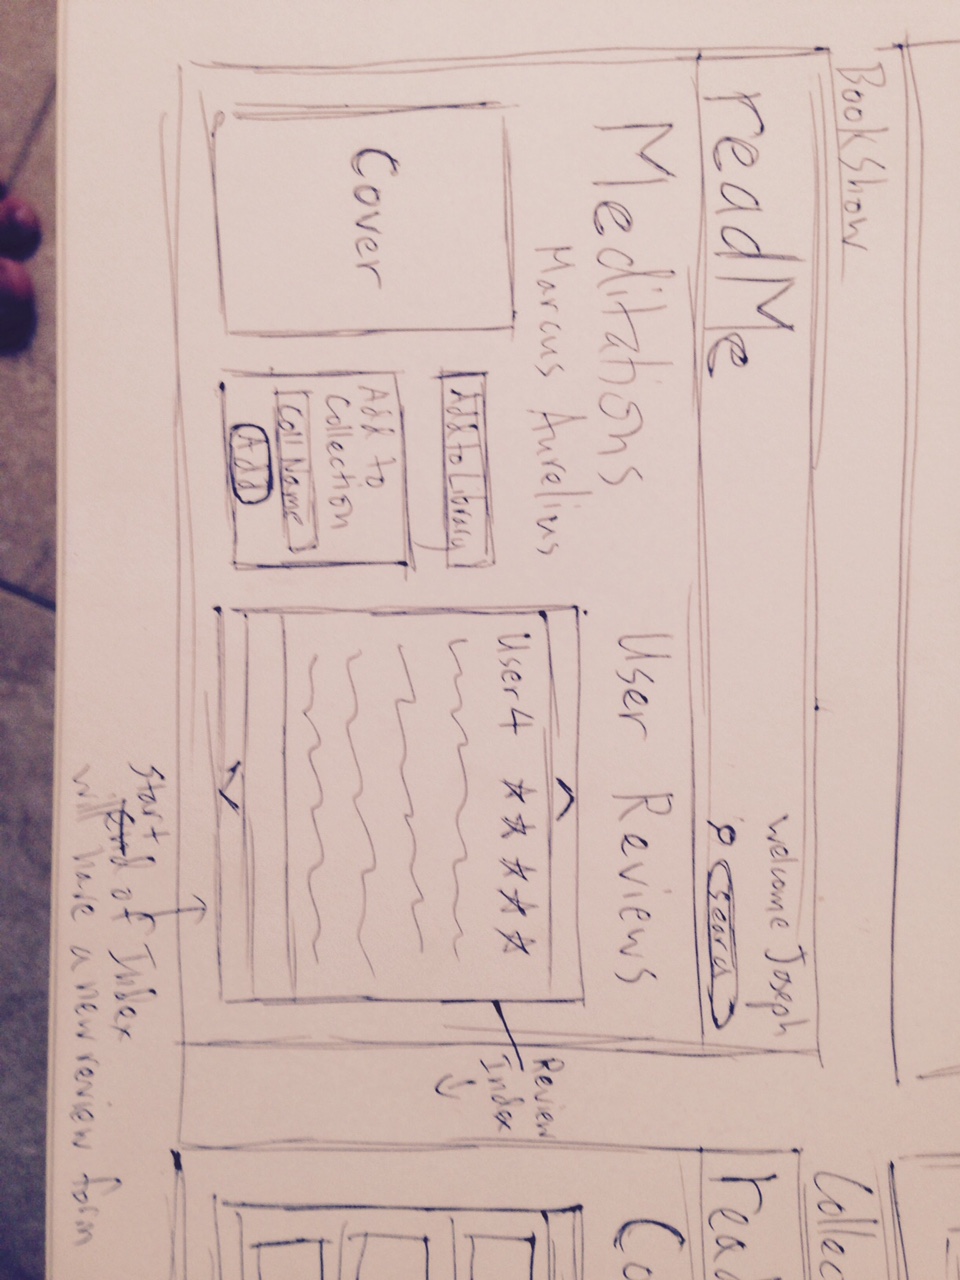 BookShow
readMe
welcome Joseph
Meditations
Marcus Aurelius
User Reviews
Cover
Add to Library
Add to
Collection
Coll Name
Add
User 4
Review
Index
Start of Index
will have a new review form
Collec
read
Co